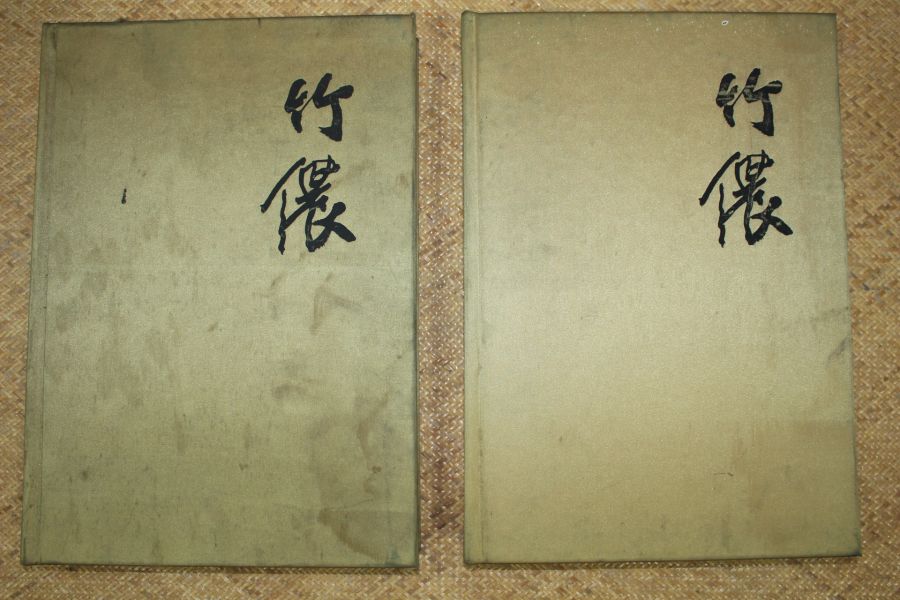 竹
儂
竹
儂